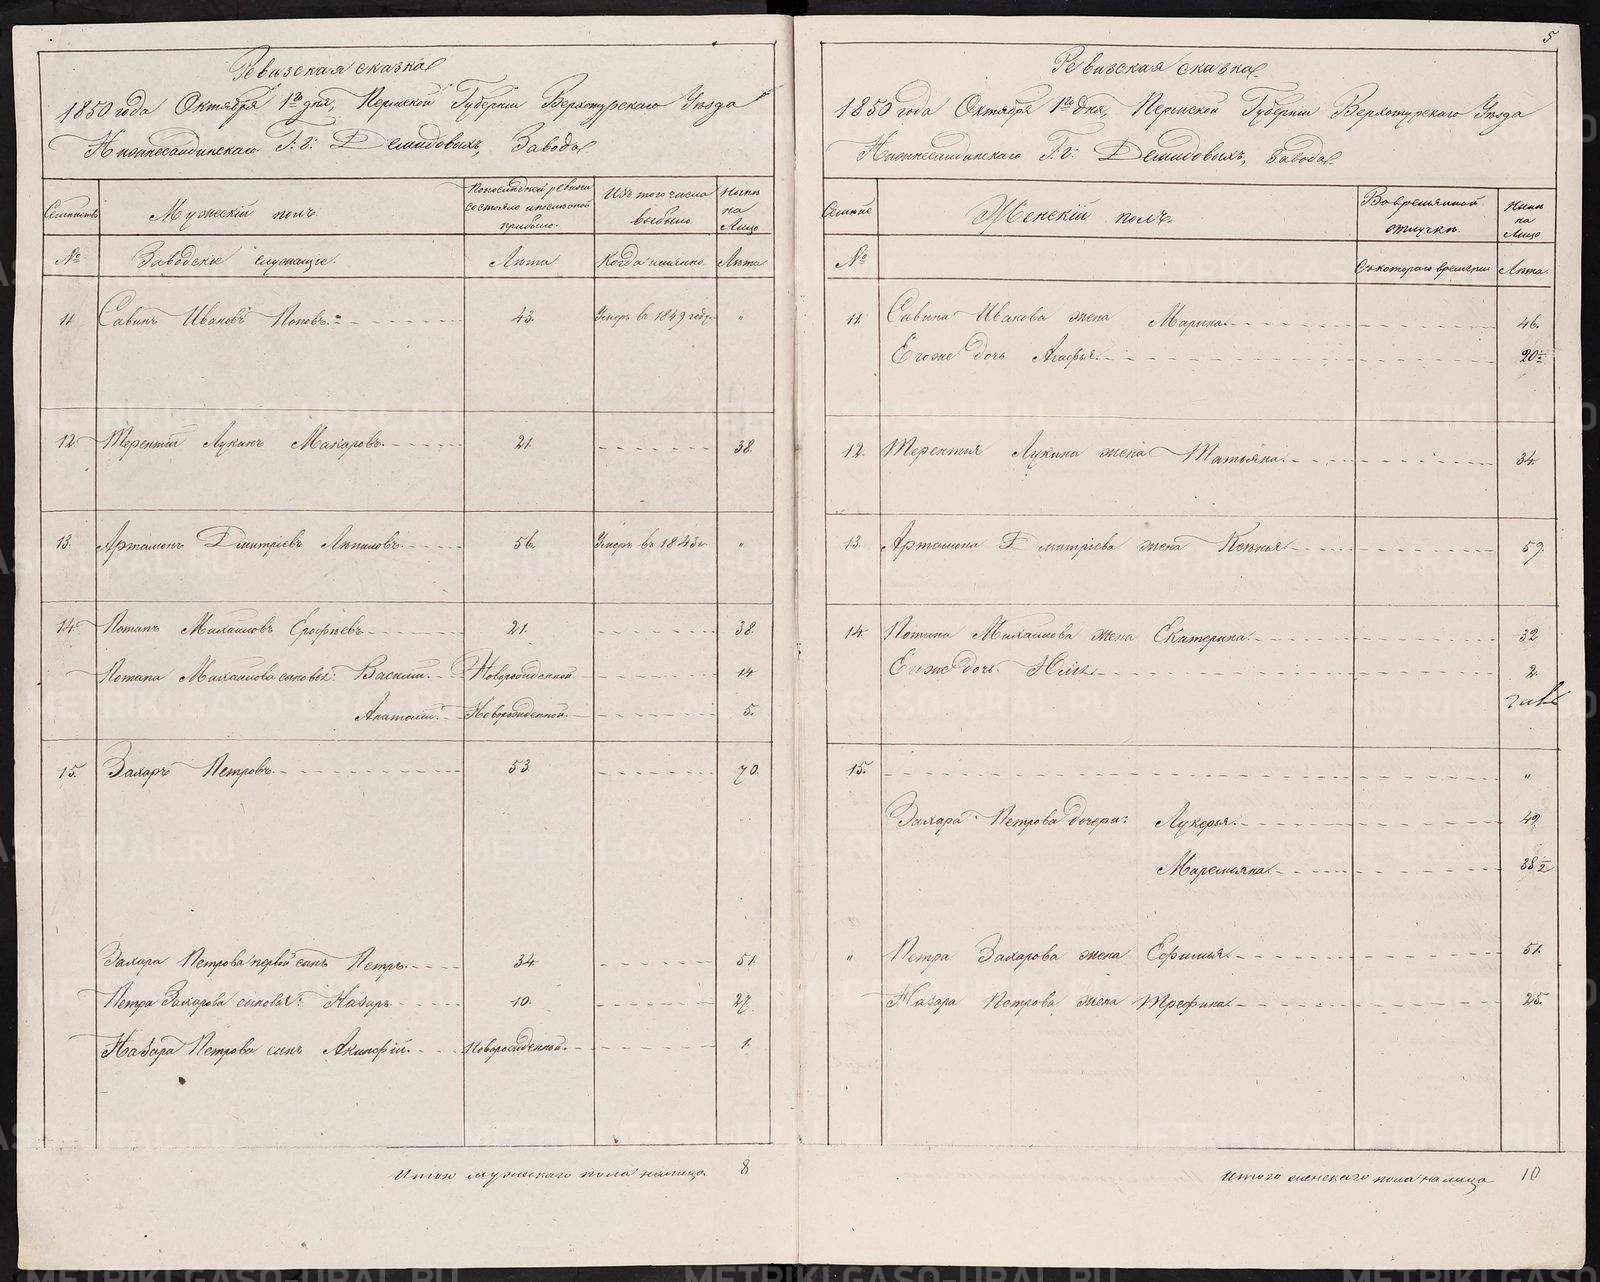 Ревизская сказка
1850 года Октября 1го дня, Пермской Губернiи Верхотурскаго Уѣзда
Нижнесалдинскаго Г: г: Демидовыхъ, Завода
Семейство
Мужескiй полъ.
По последней ревизiи состояло и после оной прибыло.
Изъ того числа выбыло
Нынѣ на лицо
№
Заводскiе служащiе.
Лѣта
Когда имянно
Лѣта
11. Савинъ Ивановъ Поповъ. 43. Умеръ въ 1849 году. "
12. Терентiй Лукинъ Макаровъ. 21. 38.
13. Артамонъ Дмитрiевъ 56. Умеръ въ 1843 г. "
14. Потапъ Михайловъ Ерофѣевъ 21. 38.
Потапа Михайлова сыновья: Василiй. Новорожденной 14
Анатолiй. Новорожденной. 5.
15. Захаръ Петровъ. 53. 70.
Захара Петрова первой сынъ Петръ. 34. 51
Петра Захарова сыновья: Назаръ 10. 27
Назара Петрова сынъ Акинфiй. Новорожденной. 1.
Итого мужескаго пола налицо 8
5
Ревизская сказка
1850 года Октября 1го дня, Пермской Губернiи Верхотурскаго Уѣзда
Нижнесалдинскаго Г: г: Демидовыхъ, завода
Женскiй полъ.
Во временной отлучкѣ.
Нынѣ на лицо
№
Съ котораго времени
Лѣта.
11. Савина Иванова жена Марина. 46.
Его же дочь Агафья. 20½
12. Терентiя Лукина жена Татьяна. 34.
13. Артамона Дмитрiева жена Ксѣнья 59.
14. Потапа Михайлова жена Екатерина. 32
Его же дочь 2.
15. "
Захара Петрова дочери: Лукерья. 42.
Маремьяна. 38½
" Петра Захарова жена Ефимья 51.
Назара Петрова жена Трефина. 25.
Итого женскаго пола налицо 10
METRIKI.GASO-URAL.RU